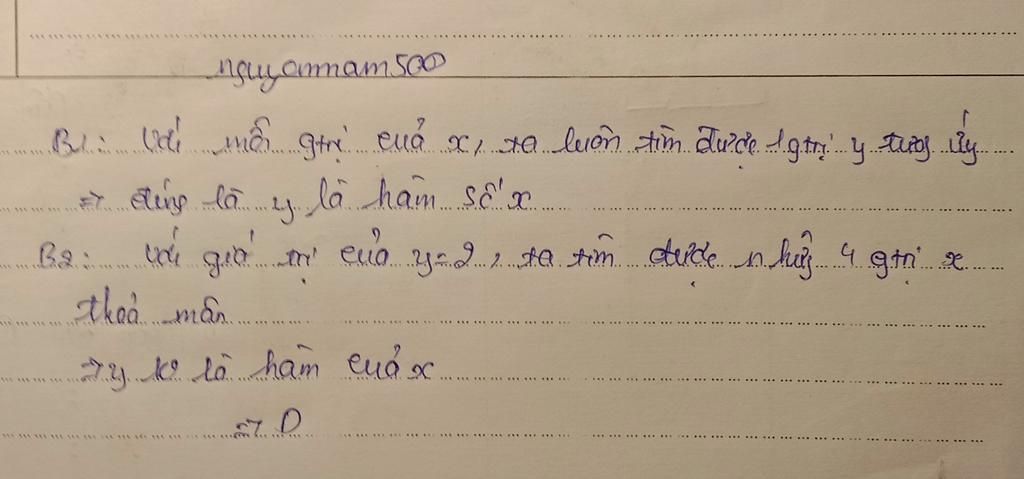 nguyannam500
B1: Với mỗi gtrị của x, ta luôn tìm được 1 gtrị y tương ứng
⇒ đúng là y là hàm số x
B2: Với giá trị của y=2, ta tìm được những 4 gtrị x
thoả mãn
⇒ y ko là hàm của x
⇒ D